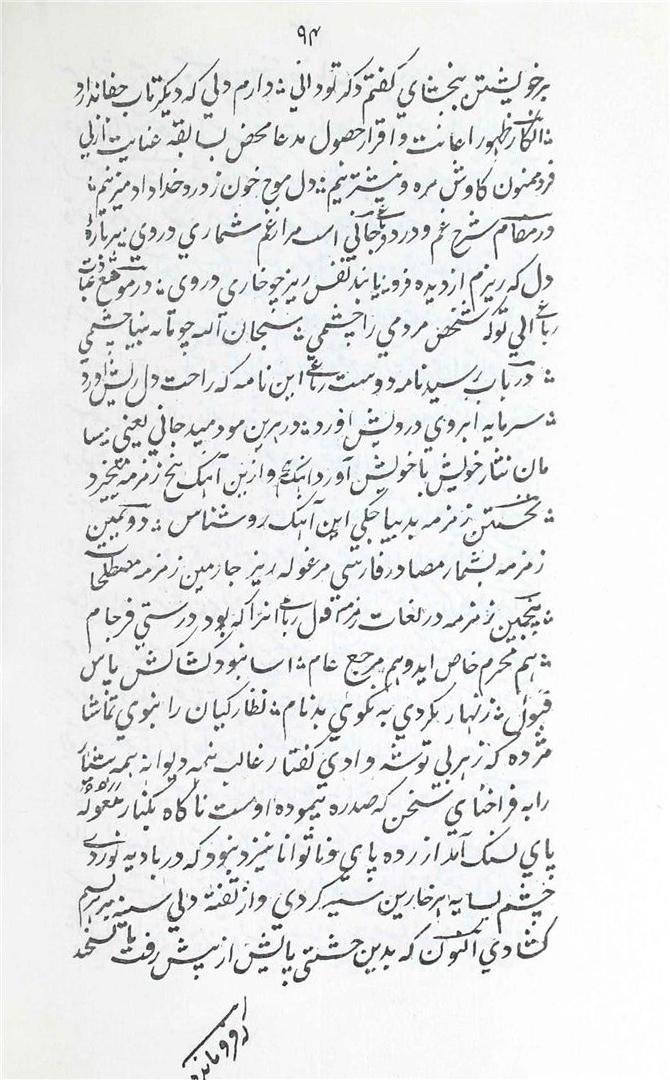 ٩٤
بر خویشتن ببخشای گفتم دگر تو دانی ؛ دارم دلی که دیگر تاب جفا ندارد
؛ انکار ظهور اعانت و اقرار حصول مدعا محض بسابقه عنایت ازلی
فرد ممنون کاوش مژه و نیشتر نیم ؛ دل موج خون ز درد خداداد میزنم ؛
در مقام شرح غم و درد رباعی جانی است مرا ز غم شماری در وی ؛ هر پاره
دل که ریزم از دیده فرو ؛ یابند نفس ریز چو خاری در وی ؛ در موقع
رباعی ای تو که شخص مردمی را چشمی ؛ سبحان الله چو تا به بینا چشمی
؛ در باب رسید نامه دوست رباعی این نامه که راحت دل ریش اورد
؛ سرمایه ابروی درویش اورد ؛ در هر بن مو دمید جانی یعنی ؛ سا
مان نثار خویش با خویش آورد و ازین آهنگ پنج زمزمه
؛ نخستین زمزمه بدیباچگی این آهنگ روشناس ؛ دویمین
زمزمه بشمار مصادر فارسی مرغوله ریز چارمین زمزمه مصطلحات
؛ پنجمین زمزمه در لغات زمزمه اول رباعی انرا که بود درستی فرجام
؛ هم محرم خاص اید و هم مرجع عام ؛ اسا نبود کشاکش پاس
قبول ؛ زنهار نگردی به نکوئی بدنام ؛ نظارگیان را نبوی تماشا
مژده که رهبر بی توشه وادی گفتار غالب نیمه دیوانه نیمه هشیار
را به فراخنای سخن که صد ره پیموده اوست ناگاه بکنار
پای بسنگ آمد ازرده پای و ناتوانا نیز نبود که در بادیه نوردی
چشم بسایه هر خاربن سیه کردی و از تفته دلی سینه بهر نسیم
کشادی اکنون که بدین خستگی پایش از پیش رفت تا بسخن
از فروماندن